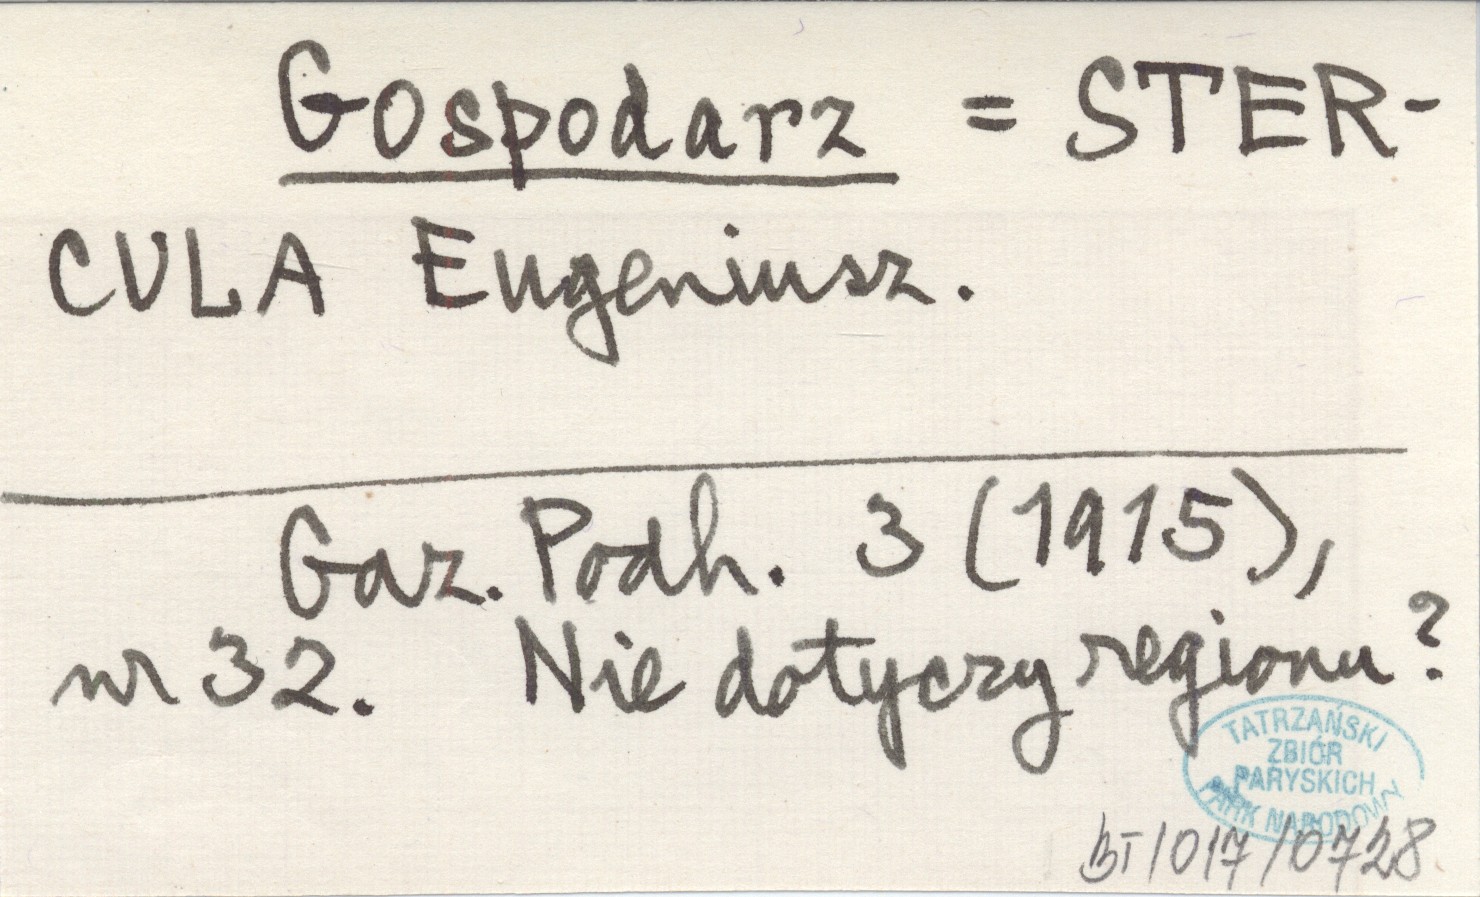 Gospodarz = STER-
CULA Eugeniusz.
Gaz. Podh. 3 (1915),
nr 32. Nie dotyczy regionu?
TATRZAŃSKI
ZBIÓR
PARYSKICH
PARK NARODOWY
BT/017/0728